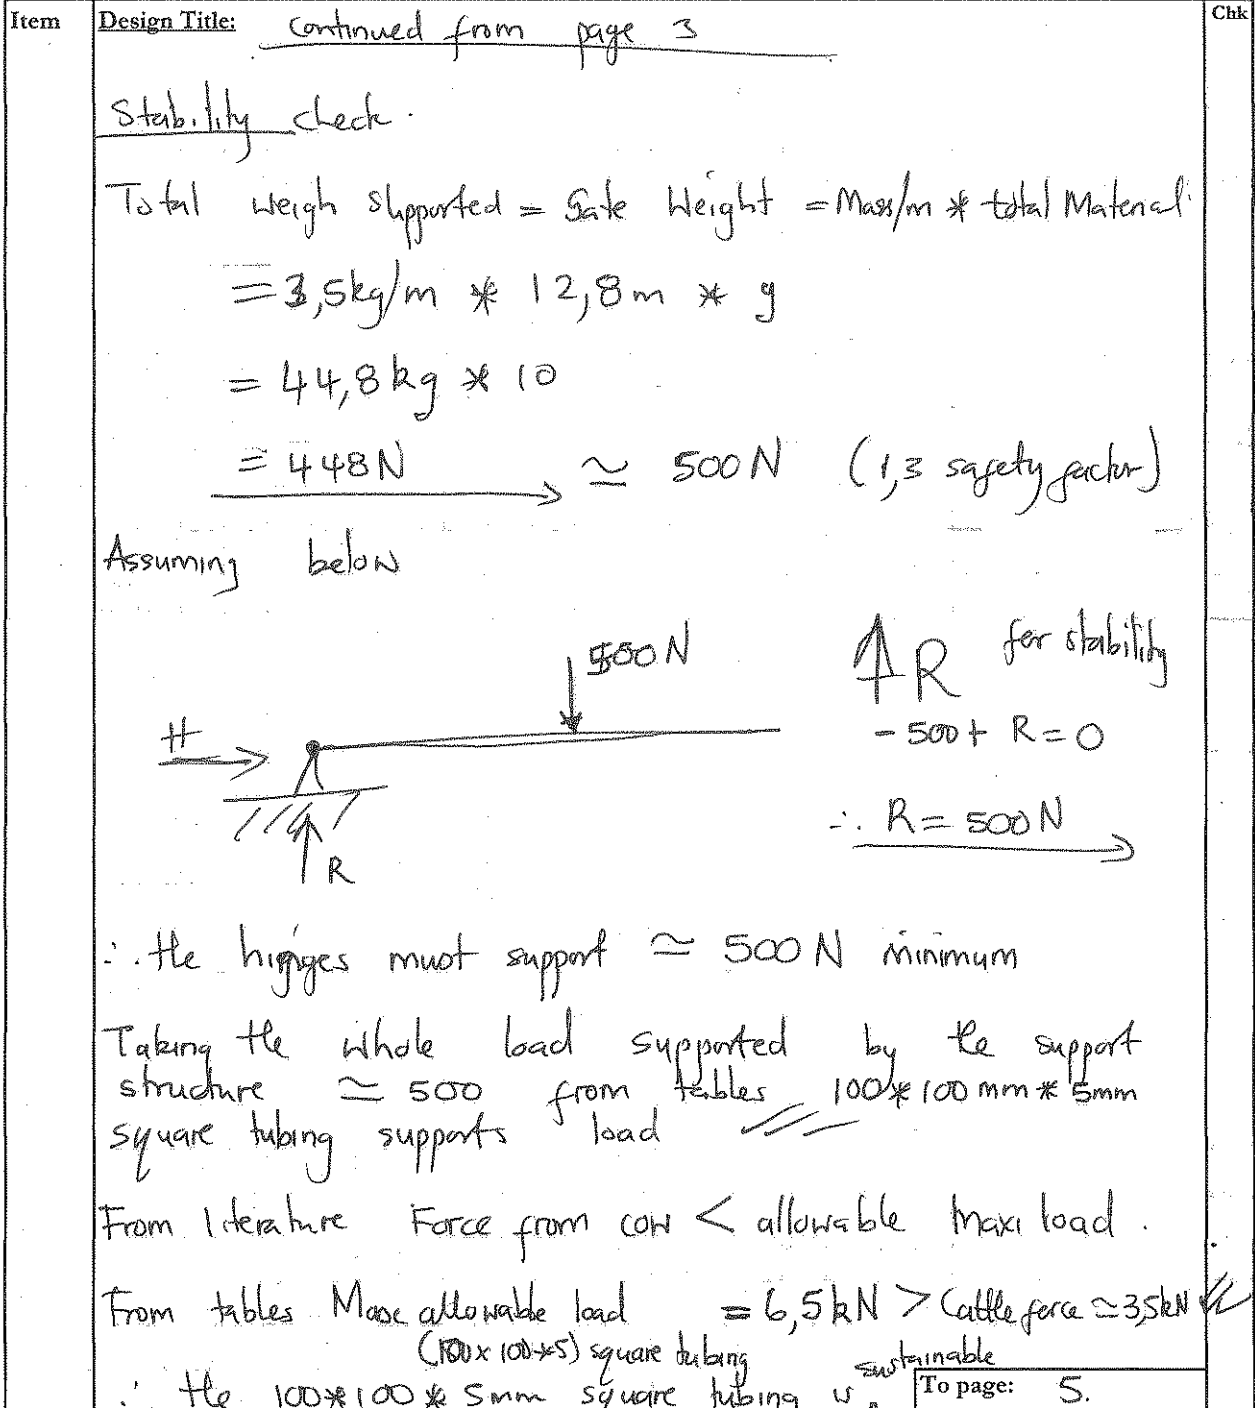 Item Design Title: Continued from page 3 Chk
Stability check.
Total weigh supported = Gate Weight = Mass/m * total Material
= 3,5kg/m * 12,8m * g
= 44,8kg * 10
= 448N ≃ 500N (1,3 safety factor)
Assuming below
500N
↑R for stability
H
- 500 + R = 0
∴ R = 500N
R
∴ the hignges must support ≃ 500N minimum
Taking the whole load supported by the support
structure ≃ 500 from tables 100*100mm*5mm
square tubing supports load
From literature Force from cow < allowable maxi load.
From tables Max allowable load = 6,5kN > Cattle force ≃ 3,5kN
(100x100*5) square tubing
sustainable
∴ the 100*100*5mm square tubing is
To page: 5.